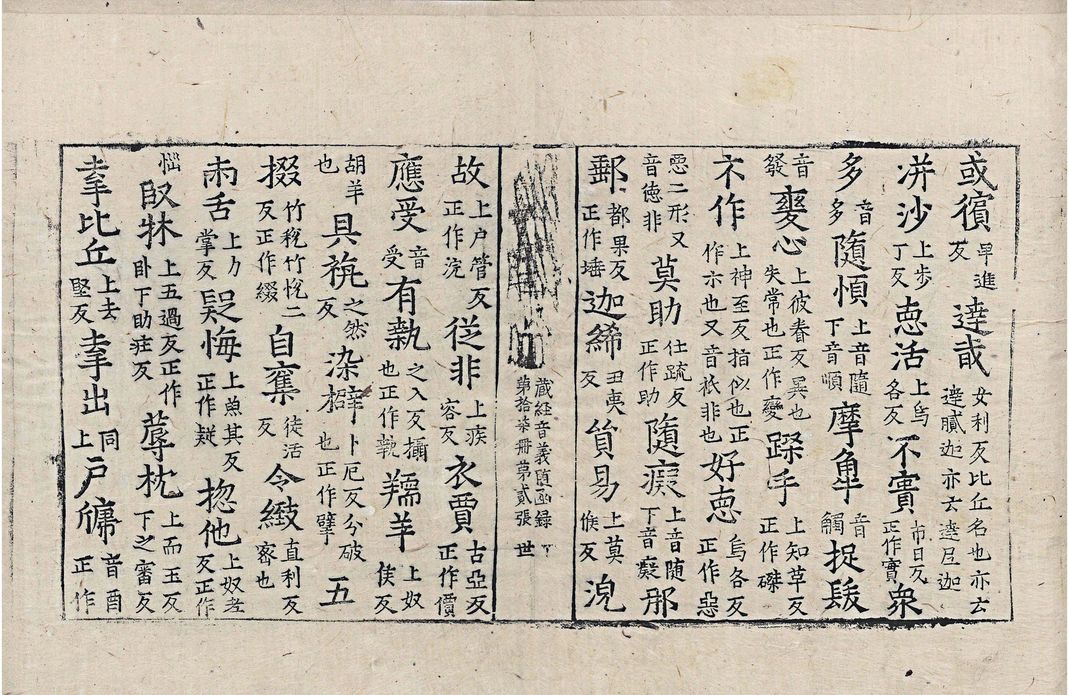 或擯 早進反 達㦲 女利反比丘名也亦云達膩迦亦云達尼迦
洴沙 上步丁反 惪活 上烏各反 不實 市日反正作實 衆
多 音多 隨愩 上音隨下音順 摩𩨒 音觸 捉髮
音發 變心 上彼眷反異也失常也正作變 躁手 上知草反正作磔
不作 上神至反指似也正作示也又音祇非也 好惪 烏各反正作惡
惡二形又音德非 莫助 仕疏反正作助 隨癡 上音随下音癡 那
郵 都果反正作埵 迦絺 丑夷反 貿易 上莫候反 涀
藏経音義随函錄
第拾柒册第貳張 世
故 上户管反正作浣 從非 上疾容反 衣賈 古亞反正作價
應受 音受 有執 之入反攝也正作執 羺羊 上奴侯反
胡羊也 具旃 之然反 染擗 卜厄反分破也正作擘 五
掇 竹稅竹恱二反正作綴 自奪 徒活反 令緻 直利反密也
兩舌 上力掌反 疑悔 上魚其反正作疑 惚他 上奴老反正作
惱 臥牀 上五過反正作卧下助庄反 蓐枕 上而玉反下之審反
牽比丘 上去堅反 牽出 同上 户牖 音酉正作